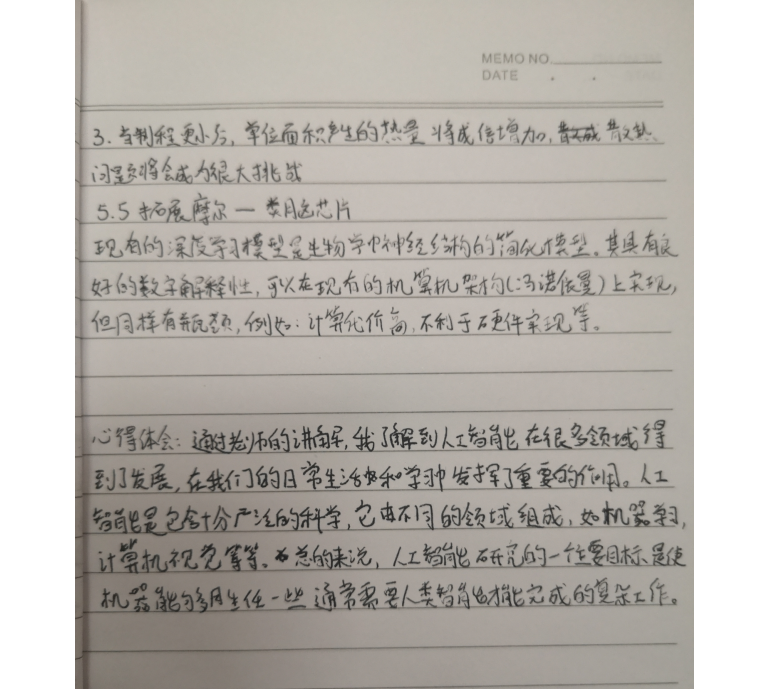 MEMO NO.
DATE . .
3. 当制程更小后, 单位面积产生的热量 将成倍增加, 散热
问题将会成为很大挑战
5.5 拓展摩尔 — 类脑芯片
现有的深度学习模型是生物学中神经结构的简化模型。其具有良
好的数字解释性, 可以在现有的计算机架构(冯诺依曼)上实现,
但同样有瓶颈, 例如: 计算化价高, 不利于硬件实现等。
心得体会: 通过老师的讲解, 我了解到人工智能在很多领域得
到了发展, 在我们的日常生活和学习中发挥了重要的作用。人工
智能是包含十分广泛的科学, 它由不同的领域组成, 如机器学习,
计算机视觉等等。总的来说, 人工智能研究的一个主要目标是使
机器能够胜任一些通常需要人类智能才能完成的复杂工作。